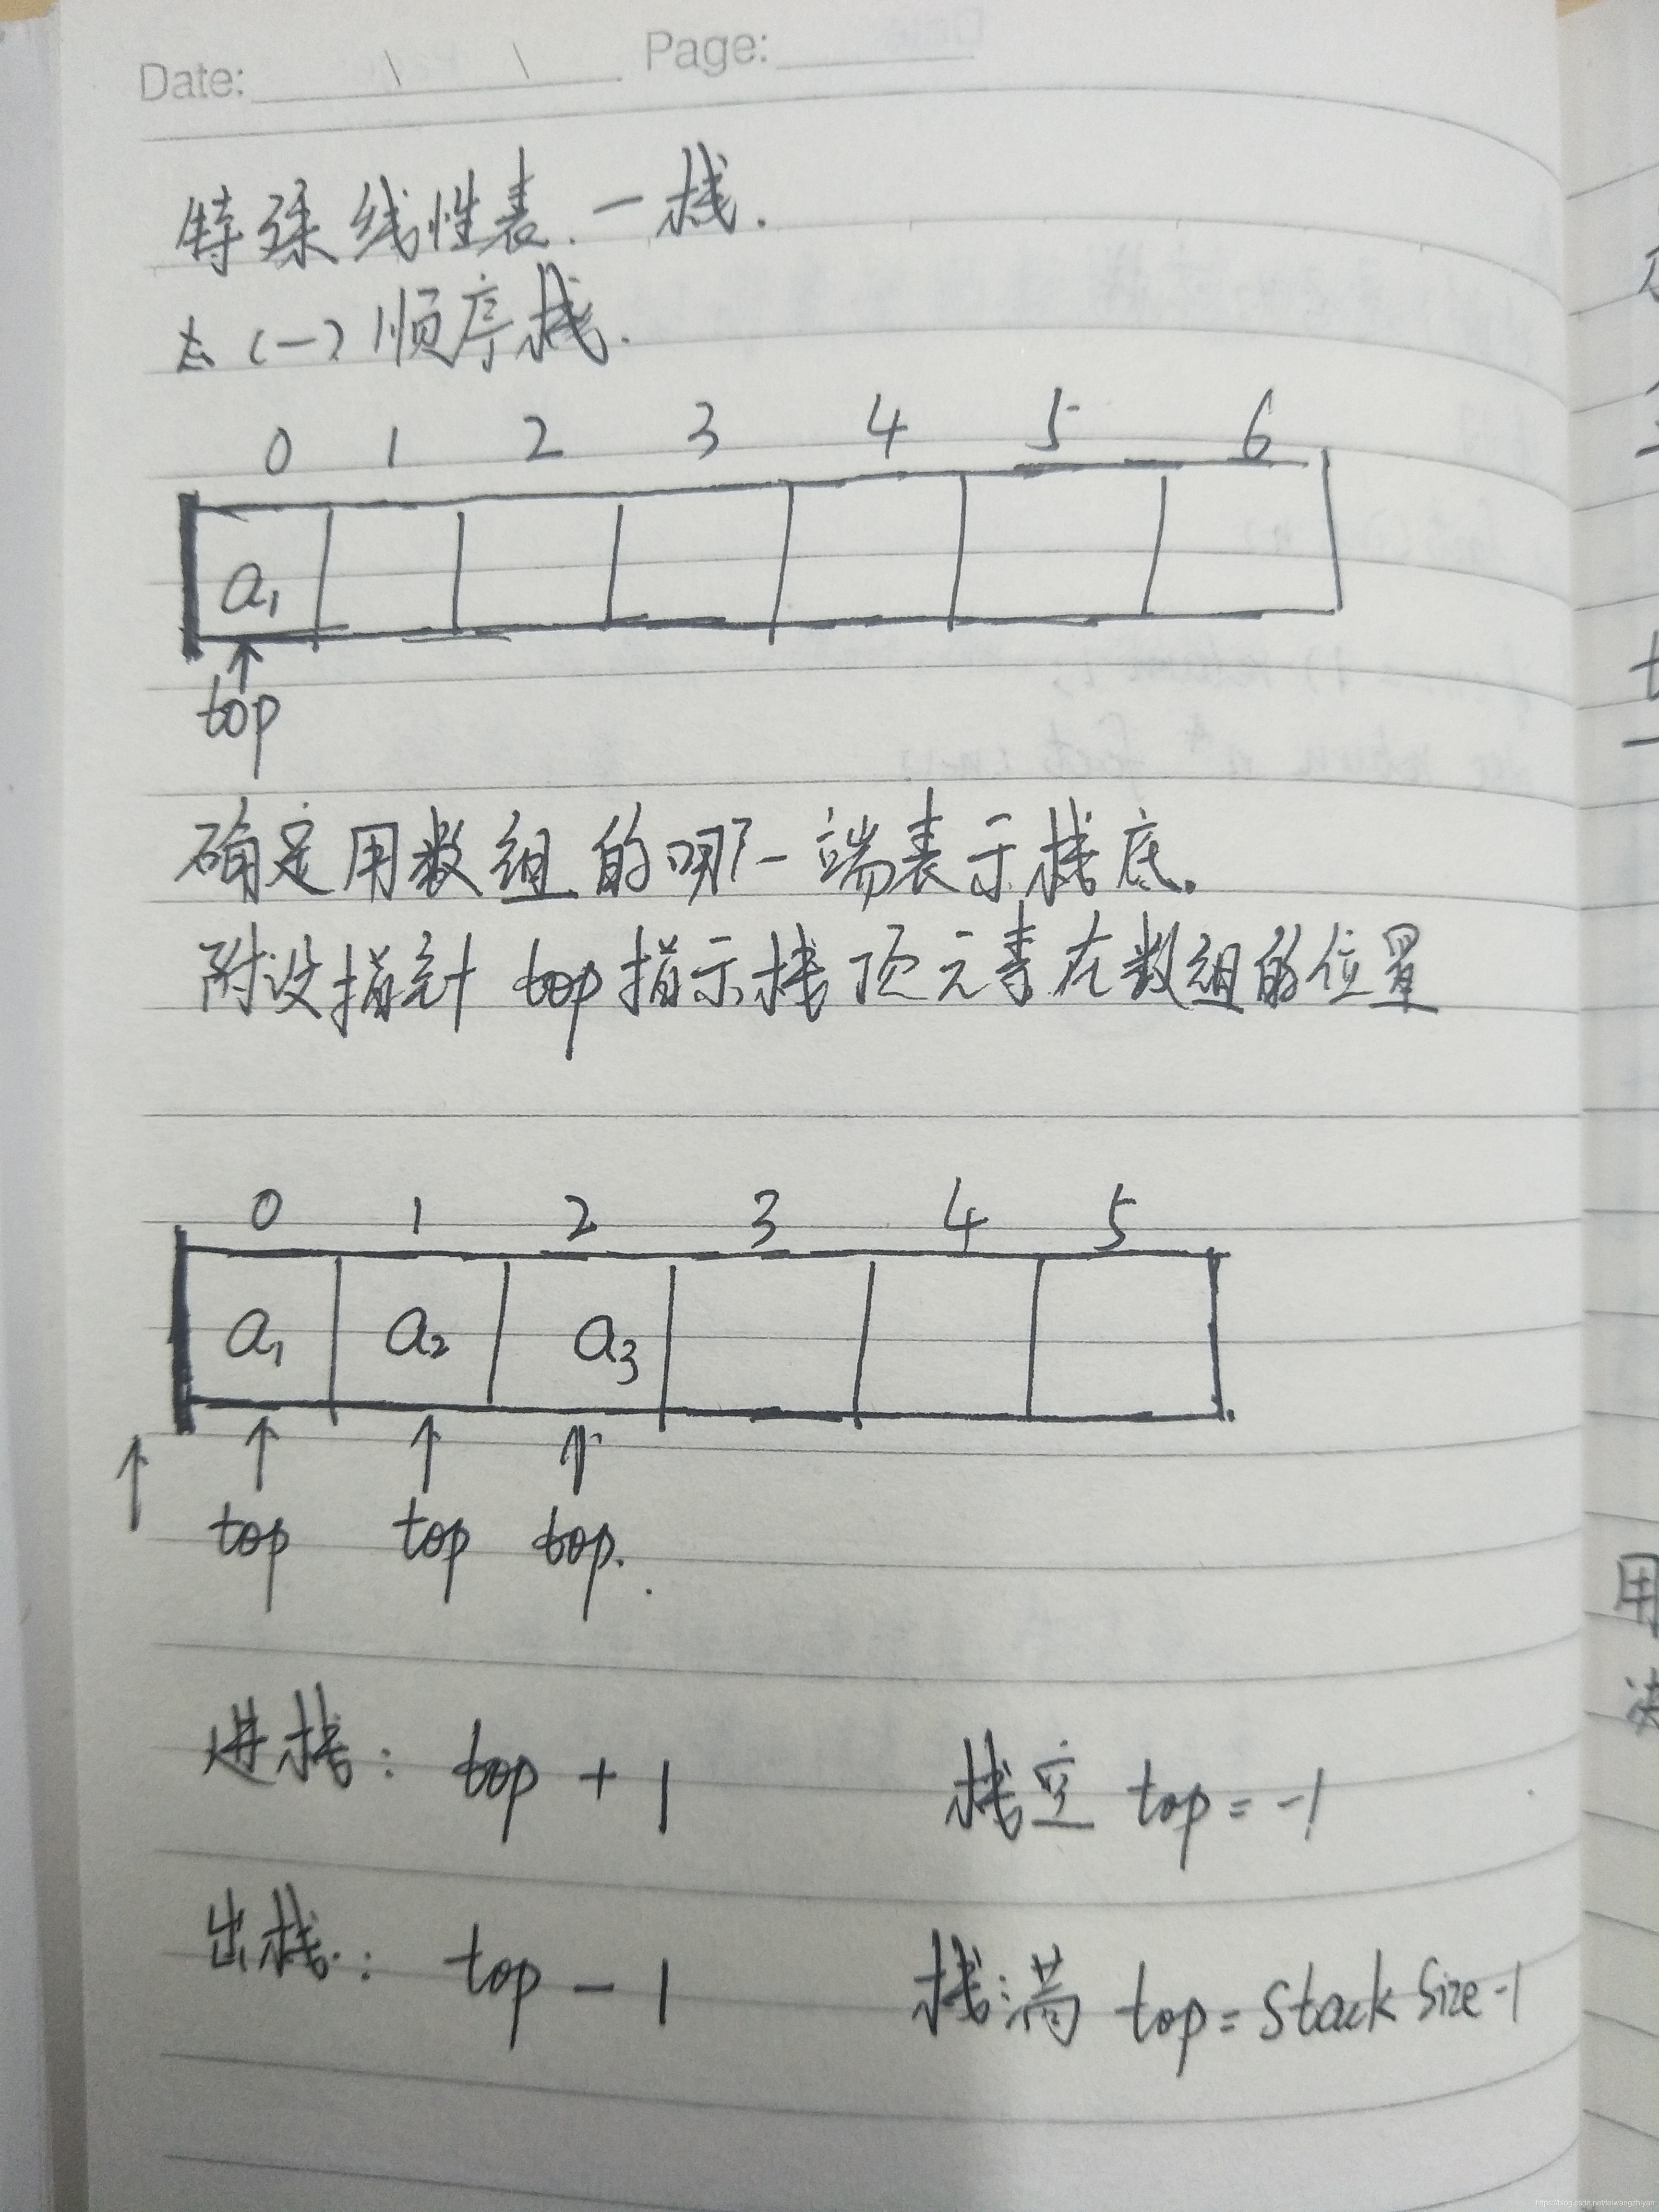 Date: Page:
特殊线性表.一栈.
(一)顺序栈.
0 1 2 3 4 5 6
a1
top
确定用数组的哪一端表示栈底。
附设指针 top指示栈顶元素在数组的位置
0 1 2 3 4 5
a1 a2 a3
top top top.
进栈: top + 1 栈空 top = -1
出栈: top - 1 栈满 top = Stack Size -1
用
https://blog.csdn.net/leiwangzhiyan